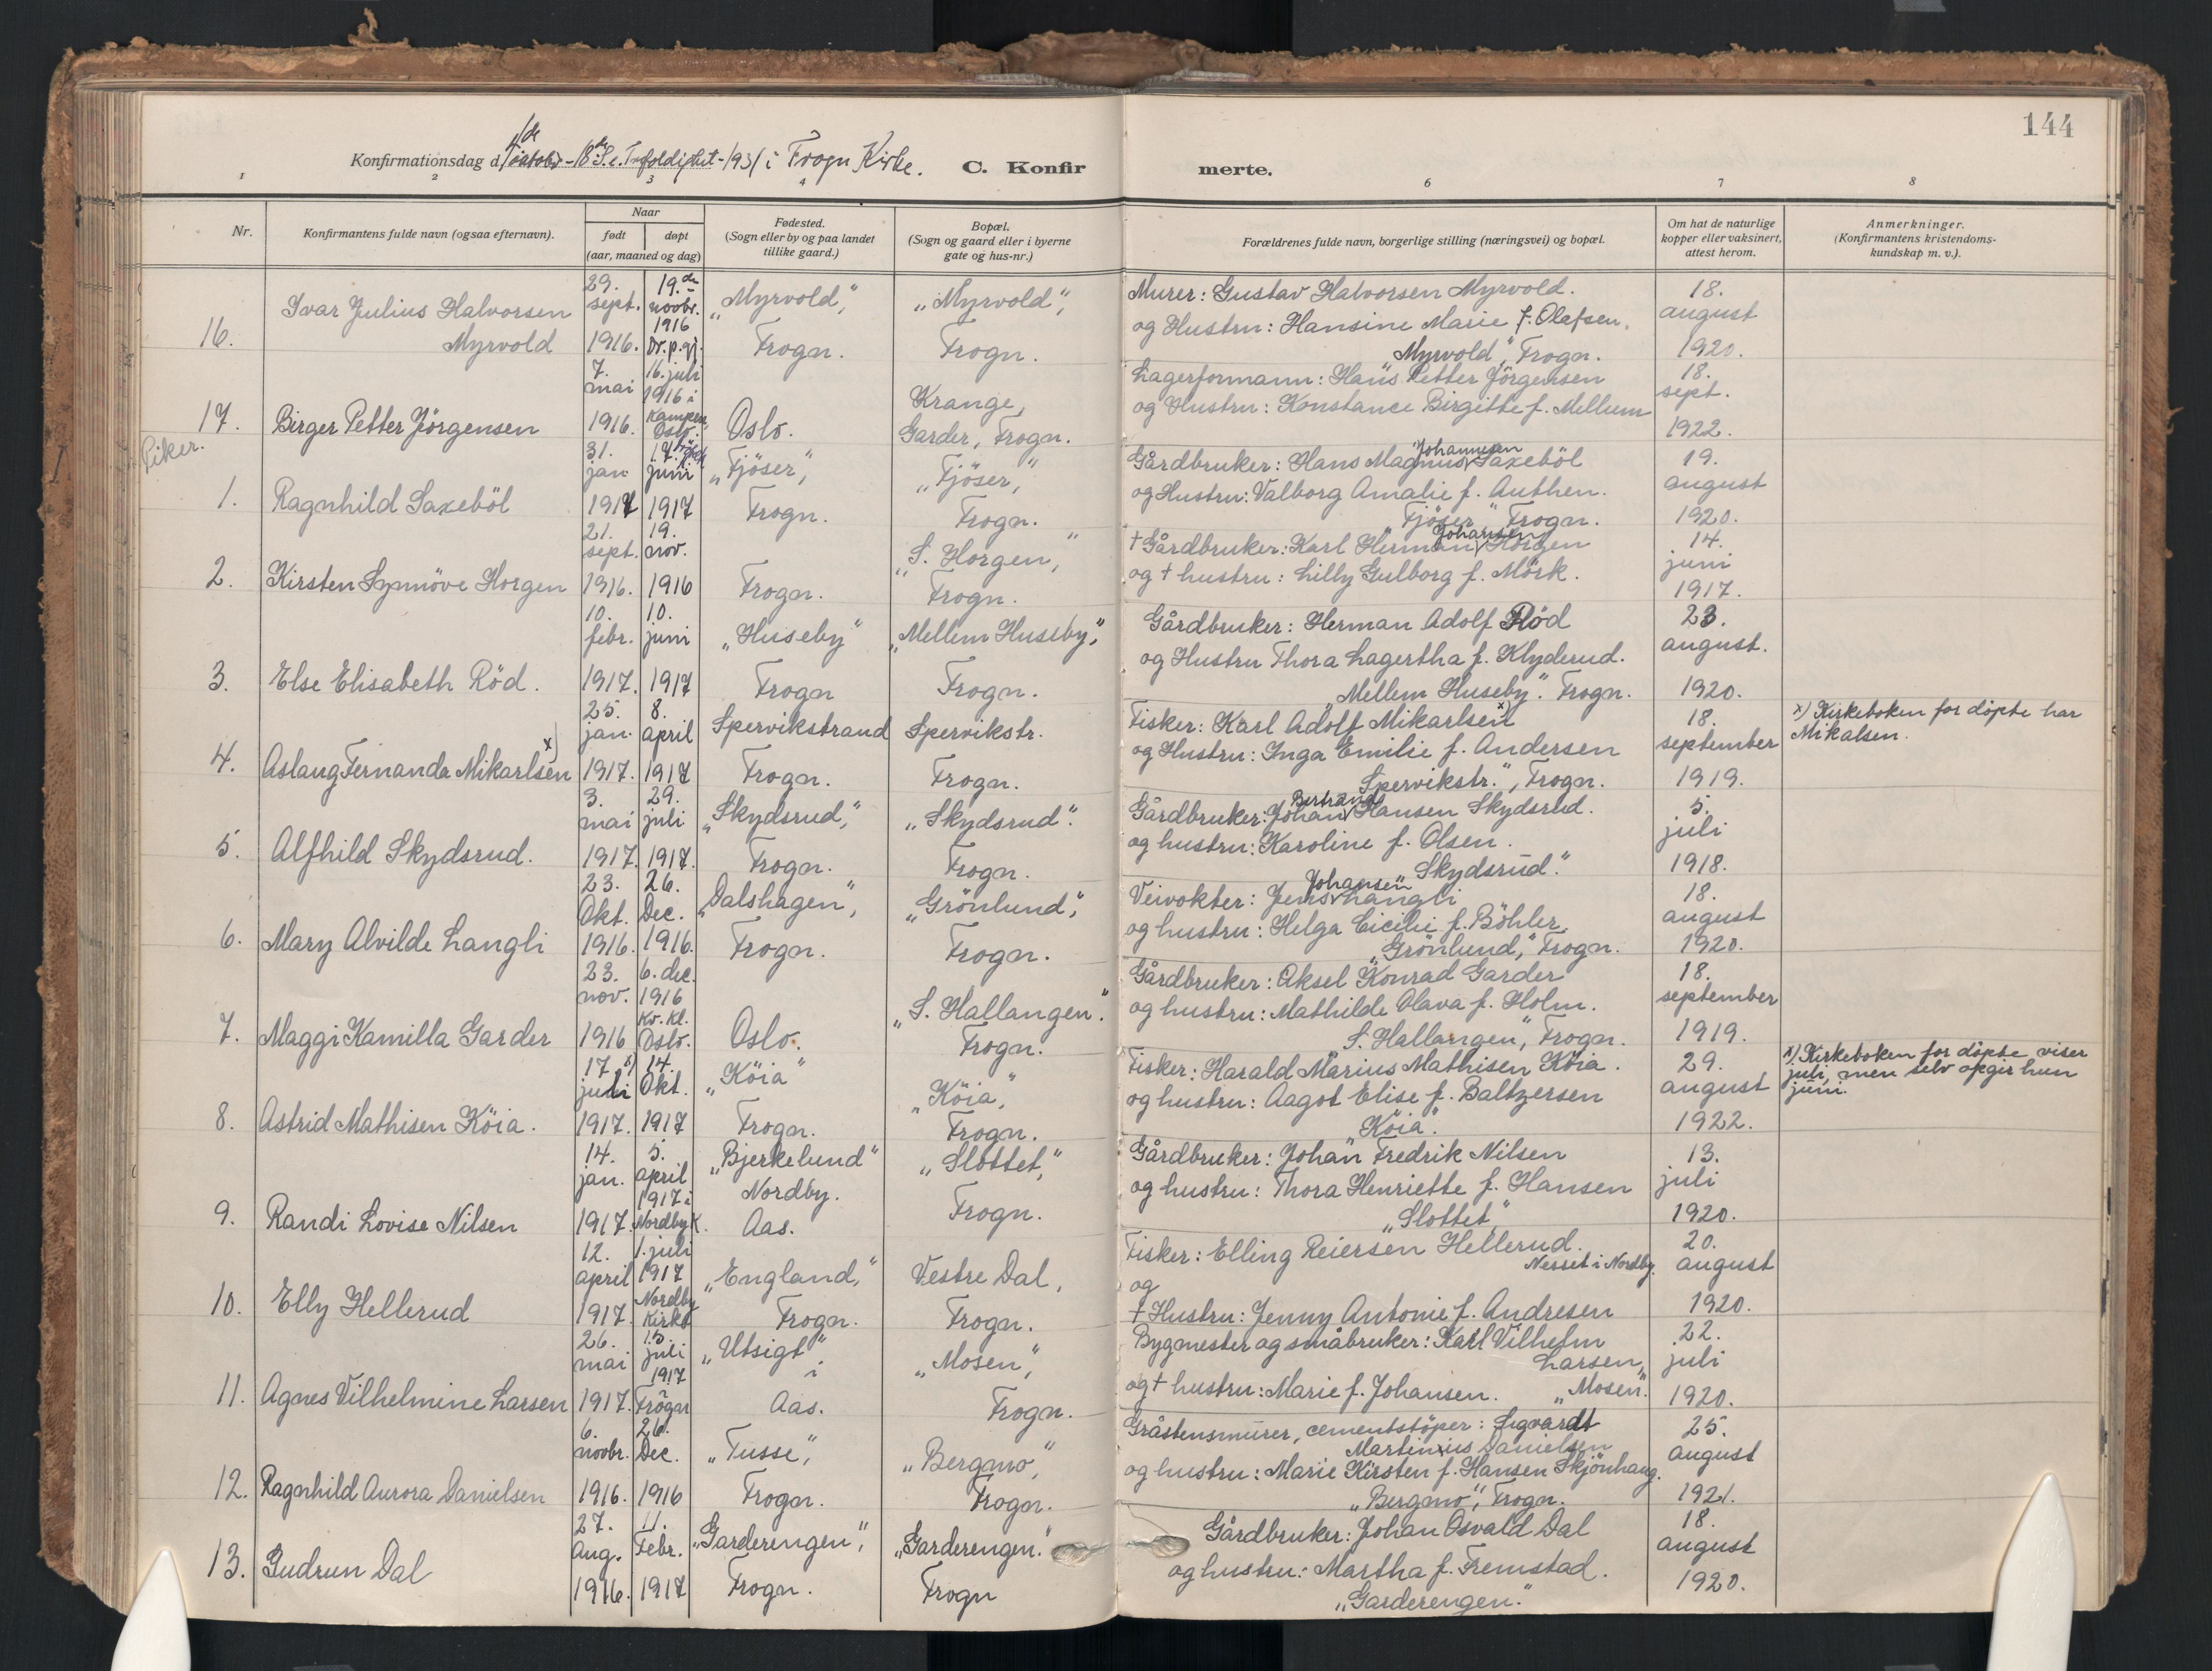 144
Konfirmationsdag d. 4de oktober - 18de S. e. Trefoldighet - 1931 i Frogn Kirke. C. Konfirmerte.
1 2 3 4 6 7 8
Nr. Konfirmantens fulde navn (ogsaa efternavn). Naar født døpt (aar, maaned og dag) Fødested. (Sogn eller by og paa landet tillike gaard.) Bopæl. (Sogn og gaard eller i byerne gate og hus-nr.) Forældrenes fulde navn, borgerlige stilling (næringsvei) og bopæl. Om hat de naturlige kopper eller vaksinert, attest herom. Anmerkninger. (Konfirmantens kristendomskundskap m. v.).
16. Ivar Julius Halvorsen Myrvold 29. sept. 1916. 19.de novbr. 1916 Dr.p.gj. „Myrvold", Frogn. „Myrvold", Frogn. Murer: Gustav Halvorsen Myrvold. og Hustru: Hansine Marie f. Olafsen, Myrvold", Frogn. 18. august 1920.
17. Birger Petter Jörgensen 7. mai 1916. 16. juli 1916 i Kampen, Oslo. Oslo. Krange, Garder, Frogn. Lagerformann: Hans Petter Jörgensen og Hustru: Konstance Birgitte f. Mellum 18. sept. 1922.
Piker.
1. Ragnhild Saxeböl 31. jan 1917 17. juni 1917 „Tjöser", Frogn. „Tjöser", Frogn. Gårdbruker: Hans Magnus Johannesen Saxeböl og Hustru: Valborg Amalie f. Authen. „Tjöser", Frogn. 19. august 1920.
2. Kirsten Synnöve Horgen 21. sept. 1916. 19. nov. 1916 Frogn. „S. Horgen," Frogn. † Gårdbruker: Karl Herman Johansen Horgen og † hustru: Lilly Gulborg f. Mörk. 14. juni 1917.
3. Else Elisabeth Röd. 10. febr. 1917. 10. juni 1917 „Huseby" Frogn „Mellem Huseby", Frogn. Gårdbruker: Herman Adolf Röd og Hustru Thora Lagertha f. Klyderud. „Mellem Huseby". Frogn. 23. august. 1920.
4. Aslaug Fernanda Mikarlsen x) 25. jan. 1917. 8. april 1917 Spervikstrand Frogn. Spervikstr. Frogn. Fisker: Karl Adolf Mikarlsen x) og Hustru: Inga Emilie f. Andersen Spervikstr.", Frogn. 18. september 1919. x) Kirkeboken for döpte har Mikalsen.
5. Alfhild Skydsrud. 3. mai 1917. 29. juli 1917. „Skydsrud", Frogn. „Skydsrud". Frogn. Gårdbruker: Johan Bertrand Hansen Skydsrud. og hustru: Karoline f. Olsen. „Skydsrud". 5. juli 1918.
6. Mary Alvilde Langli 23. Okt. 1916. 26. Dec. 1916. „Dalshagen", Frogn. „Grönlund", Frogn. Veivokter: Jens Johansen Langli og hustru: Helga Cicilie f. Böhler, „Grönlund", Frogn. 18. august 1920.
7. Maggi Kamilla Garder 23. nov. 1916 6. dec. 1916 Kv. kl. Oslo. Oslo. „S. Hallangen". Frogn. Gårdbruker: Aksel Konrad Garder og hustru: Mathilde Olava f. Holm. S. Hallangen", Frogn. 18. september 1919.
8. Astrid Mathisen Köia. 17. x) juli 1917. 14. Okt. 1917 „Köia" Frogn. „Köia", Frogn. Fisker: Harald Marius Mathisen Köia. og hustru: Aagot Elise f. Baltzersen „Köia". 29. august 1922. x) Kirkeboken for döpte viser juli, men selv opgir hun juni.
9. Randi Lovise Nilsen 14. jan. 1917. 5. april 1917 i Nordby K. „Bjerkelund" Nordby. Aas. „Slottet," Frogn. Gårdbruker: Johan Fredrik Nilsen og hustru: Thora Henriette f. Hansen „Slottet" 13. juli 1920.
10. Elly Hellerud 12. april 1917. 1. juli 1917 Nordby Kirke „England," Frogn. Vestre Dal, Frogn. Fisker: Elling Reiersen Hellerud. Nesset i Nordby. og † Hustru: Jenny Antonie f. Andresen 20. august 1920.
11. Agnes Vilhelmine Larsen 26. mai 1917. 15. juli 1917 Frogn „Utsigt" i Aas. „Mosen", Frogn. Bygmester og småbruker: Karl Vilhelm Larsen, og † hustru: Marie f. Johansen. „Mosen". 22. juli 1920.
12. Ragnhild Aurora Danielsen 6. novbr. 1916. 26. Dec. 1916 „Tusse", Frogn. „Bergmo", Frogn. Gråstensmurer, cementstöper: Sigvardt Martinius Danielsen og hustru: Marie Kirsten f. Hansen Skjönhaug. „Bergmo", Frogn. 25. august 1921.
13. Gudrun Dal 27. Aug. 1916. 11. Febr. 1917 „Garderengen", Frogn. „Garderengen". Frogn Gårdbruker: Johan Osvald Dal og hustru: Martha f. Fremstad. „Garderengen." 18. august 1920.